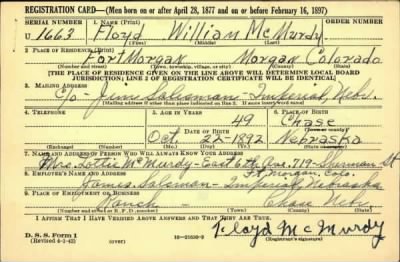 REGISTRATION CARD—(Men born on or after April 28, 1877 and on or before February 16, 1897)
SERIAL NUMBER 1. NAME (Print) ORDER NUMBER
U 1663 Floyd William McMurdy
(First) (Middle) (Last)
2. PLACE OF RESIDENCE (Print)
Fort Morgan Morgan Colorado
(Number and street) (Town, township, village, or city) (County) (State)
[THE PLACE OF RESIDENCE GIVEN ON THE LINE ABOVE WILL DETERMINE LOCAL BOARD
JURISDICTION; LINE 2 OF REGISTRATION CERTIFICATE WILL BE IDENTICAL]
3. MAILING ADDRESS
c/o Jim Salsman - Imperial, Nebr.
[Mailing address if other than place indicated on line 2. If same insert word same]
4. TELEPHONE 5. AGE IN YEARS 6. PLACE OF BIRTH
49 Chase
DATE OF BIRTH (Town or county)
Oct 22 - 1892 Nebraska
(Mo.) (Day) (Yr.) (State or country)
7. NAME AND ADDRESS OF PERSON WHO WILL ALWAYS KNOW YOUR ADDRESS
Mrs. Lottie McMurdy - East 6th Ave. 719 - Sherman St
8. EMPLOYER'S NAME AND ADDRESS Ft. Morgan, Colo.
James Salsman - Imperial, Nebraska
9. PLACE OF EMPLOYMENT OR BUSINESS
Ranch Chase Nebr
(Number and street or R. F. D. number) (Town) (County) (State)
I AFFIRM THAT I HAVE VERIFIED ABOVE ANSWERS AND THAT THEY ARE TRUE.
D. S. S. Form 1
(Revised 4-1-42) (over) 16-21630-2
Floyd McMurdy
(Registrant's signature)